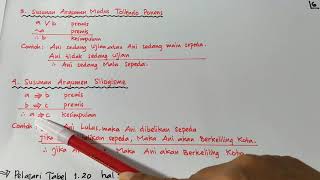 3. Susunan Argumen Modus Tollendo Ponens
a v b premis
~a premis
∴ b Kesimpulan
Contoh: Ani sedang Ujian atau Ani sedang main sepeda.
Ani tidak sedang ujian
∴ Ani sedang Main Sepeda.
4. Susunan Argumen Silogisme
a ⇒ b premis
b ⇒ c premis
∴ a ⇒ c Kesimpulan
Contoh Ani Lulus, maka Ani dibelikan sepeda
Jika dibelikan sepeda, Maka Ani akan Berkeliling Kota.
∴ Jika Ani Maka Ani akan Berkeliling Kota.
⇒ Pelajari Tabel 1.20 hal